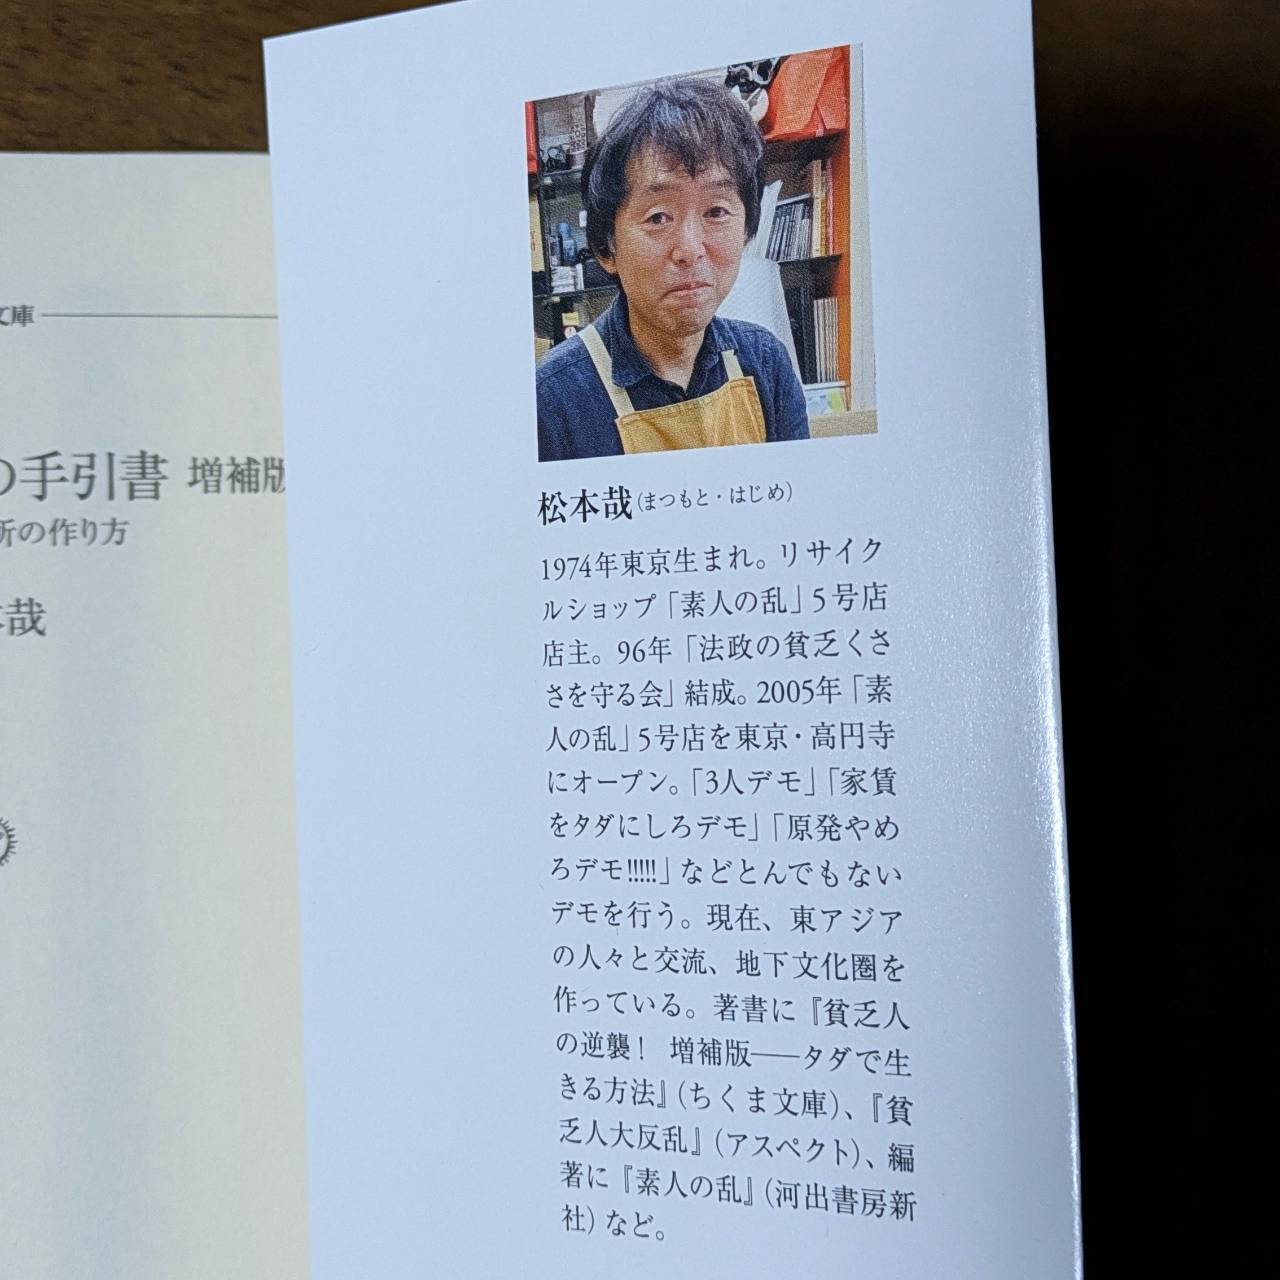 文庫
の手引書 増補版
所の作り方
本哉
松本哉(まつもと・はじめ)
1974年東京生まれ。リサイク
ルショップ「素人の乱」5号店
店主。96年「法政の貧乏くさ
さを守る会」結成。2005年「素
人の乱」5号店を東京・高円寺
にオープン。「3人デモ」「家賃
をタダにしろデモ」「原発やめ
ろデモ!!!!!」などとんでもない
デモを行う。現在、東アジア
の人々と交流、地下文化圏を
作っている。著書に『貧乏人
の逆襲! 増補版——タダで生
きる方法』(ちくま文庫)、『貧
乏人大反乱』(アスペクト)、編
著に『素人の乱』(河出書房新
社)など。